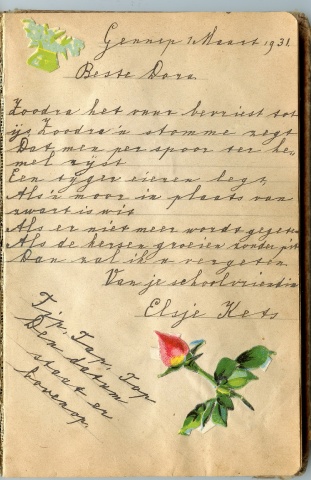 Gennep 1 Maart 1931.
Beste Dora.
Zoodra het vuur bevriest tot
ijs Zoodra 'n stomme zegt
Dat men per spoor ter he-
mel rijst
Een tijger eieren legt,
Als 'n moor in plaats van
zwart is wit
Als er niet meer wordt gegeten
Als de kersen groeien zonder pit
Dan zal ik u vergeten
Van je schoolvriendin
Elsje Kets
Tip, Tap, Top
Den datum
staat er
bovenop.